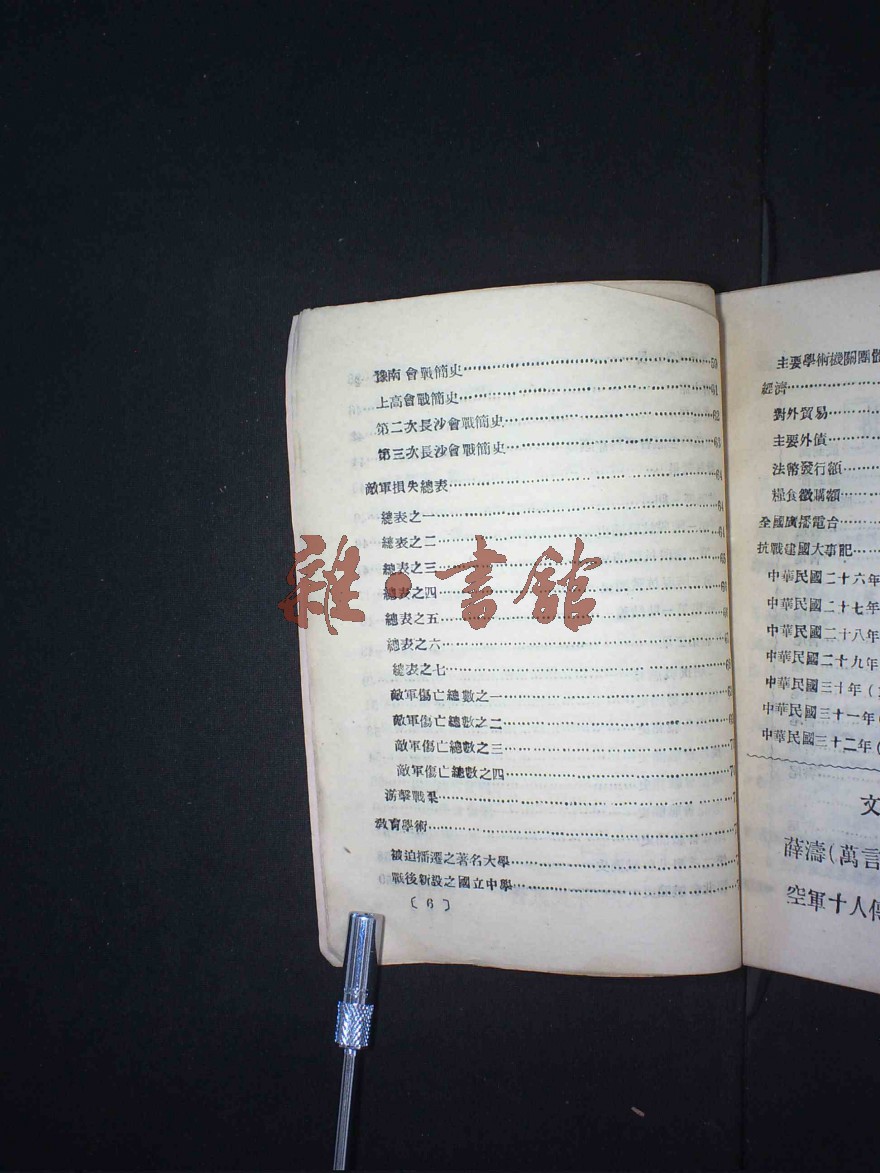 豫南會戰簡史……59
上高會戰簡史……61
第二次長沙會戰簡史……62
第三次長沙會戰簡史……63
敵軍損失總表……64
總表之一……64
總表之二……64
總表之三……65
總表之四……66
總表之五……66
總表之六……67
總表之七……
敵軍傷亡總數之一……
敵軍傷亡總數之二……
敵軍傷亡總數之三……
敵軍傷亡總數之四……
游擊戰果……
教育學術……
被迫播遷之著名大學……
戰後新設之國立中學……
〔6〕
主要學術機關團體
經濟……
對外貿易……
主要外債……
法幣發行額……
糧食徵購額……
全國廣播電台……
抗戰建國大事記……
中華民國二十六年
中華民國二十七年
中華民國二十八年
中華民國二十九年
中華民國三十年(
中華民國三十一年(
中華民國三十二年(
文
薛濤(萬言
空軍十人傳
雜·書館